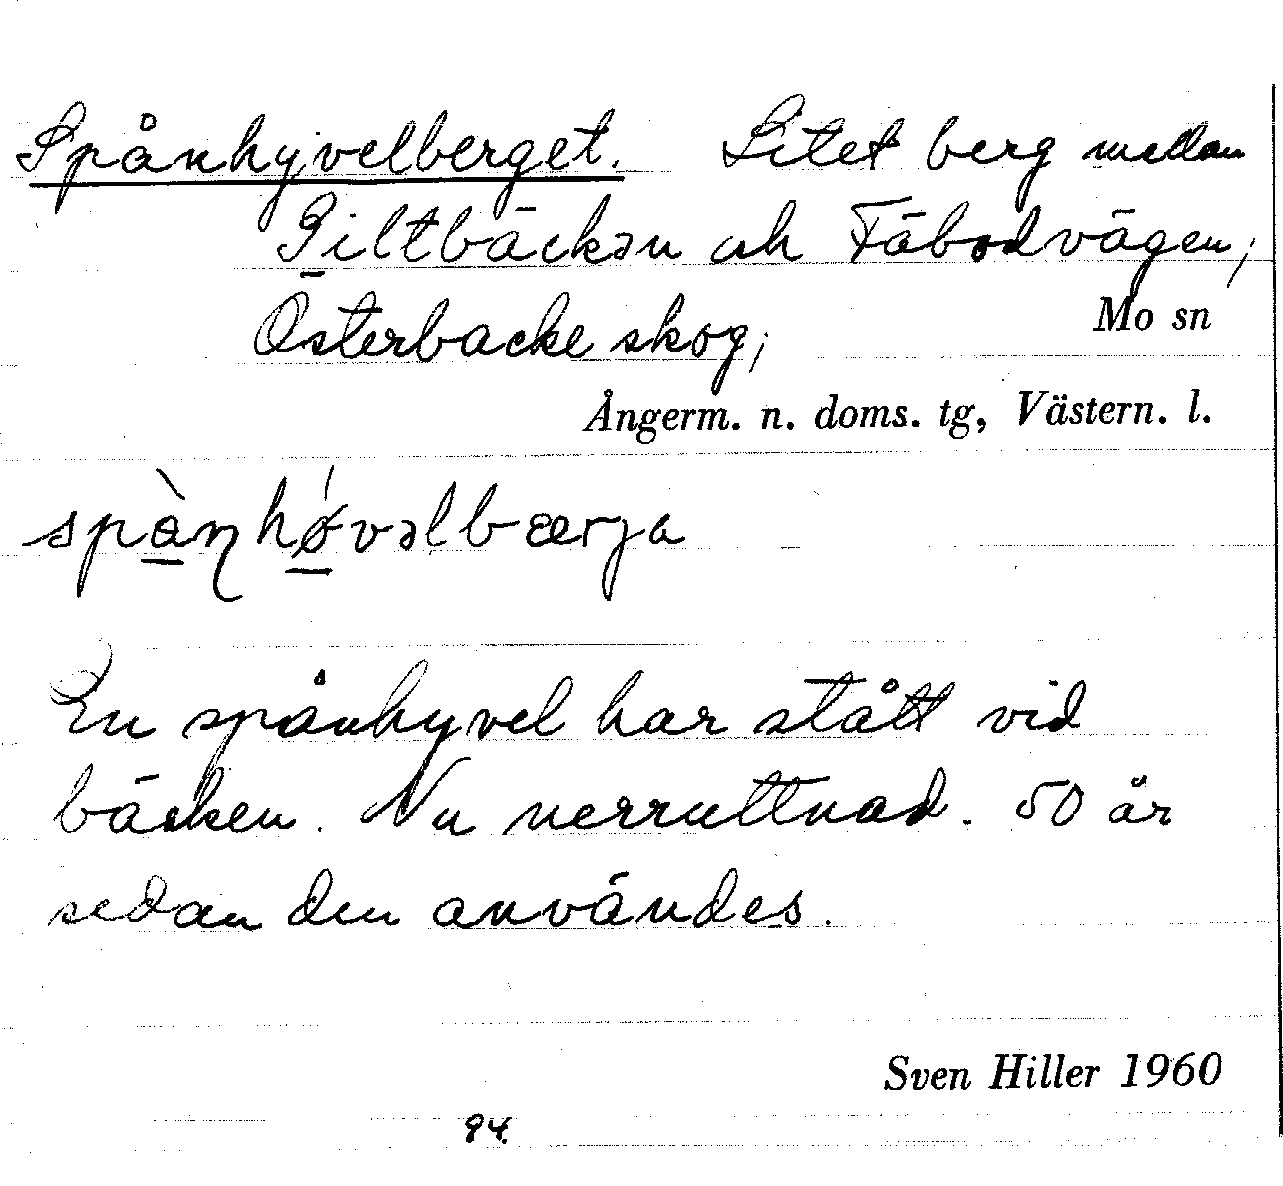 Spånhyvelberget. Litet berg mellan
Giltbäcken och Fäbodvägen;
Österbacke skog; Mo sn
Ångerm. n. doms. tg, Västern. l.
En spånhyvel har stått vid
bäcken. Nu nerruttnad. 50 år
sedan den användes.
Sven Hiller 1960
94.